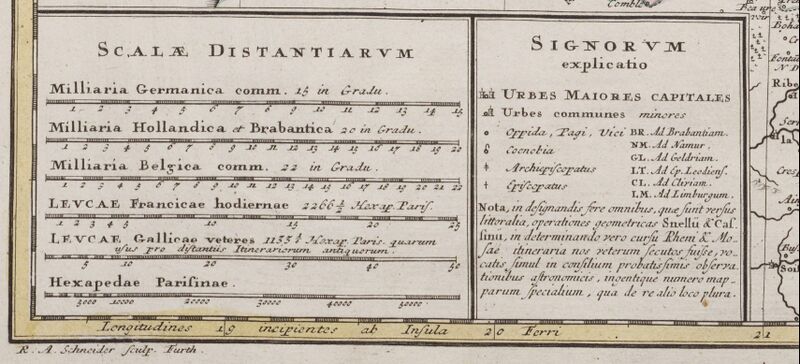 SCALÆ DISTANTIARVM
Milliaria Germanica comm. 15 in Gradu.
1 2 3 4 5 6 7 8 9 10 11 12 13 14 15
Milliaria Hollandica et Brabantica 20 in Gradu.
Milliaria Belgica comm. 22 in Gradu.
1 2 3 4 5 6 7 8 9 10 11 12 13 14 15 16 17 18 19 20 21 22
LEVCAE Francicae hodiernae 2266 2/3 Hexap. Paris.
1 2 3 4 5 10 15 20 25 30
LEVCAE Gallicae veteres Hexap. Paris. quarum
usus pro distantiis Itinerariorum antiquorum.
5 10 20 30 40 50
Hexapedae Parisinae.
5000 10000 20000 30000 40000 50000
SIGNORVM
explicatio
URBES MAIORES CAPITALES
Urbes communes minores
Oppida, Pagi, Vici
Coenobia
Archiepiscopatus
Episcopatus
BR. Ad Brabantiam.
NM. Ad Namur.
GL. Ad Geldriam.
LT. Ad Ep. Leodiens.
CL. Ad Cliviam.
LM. Ad Limburgum.
Nota, in designandis fere omnibus, quæ sunt versus
littoralia, operationes geometricas Snellii & Cas
sinii, in determinando vero cursu Rheni & Mo
sæ itineraria nos veterum secutos fuisse, vo
catis simul in consilium probatissimis observa
tionibus astronomicis, ingentique numero map
parum specialium, qua de re alio loco plura.
Longitudines 19 incipientes ab Insula 20 Ferri 21
R. A. Schneider sculp. Furth.